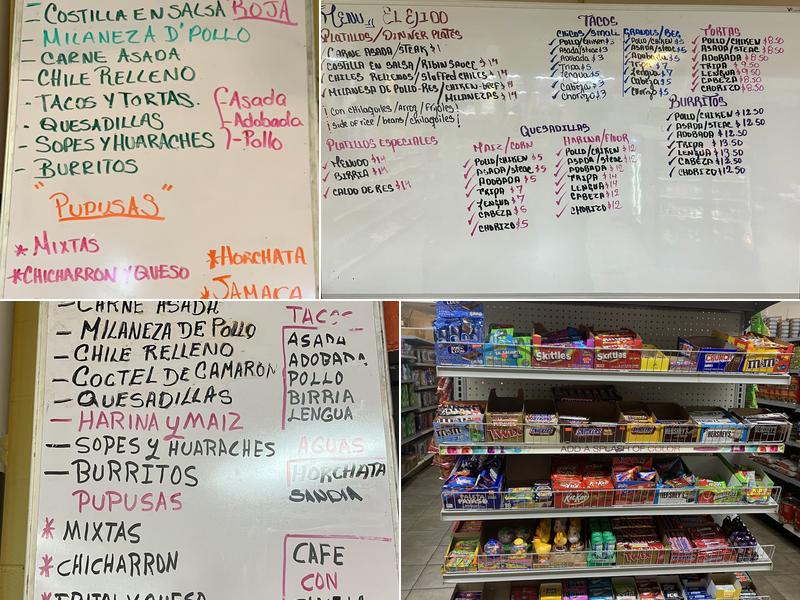 - COSTILLA EN SALSA ROJA
- MILANEZA D' POLLO
- CARNE ASADA
- CHILE RELLENO
- TACOS Y TORTAS.
- QUESADILLAS
- SOPES Y HUARACHES
- BURRITOS
Asada
Adobada
Pollo
"PUPUSAS"
* MIXTAS
* CHICHARRON Y QUESO
* HORCHATA
* JAMACA
MENU EL EJIDO
PLATILLOS/DINNER PLATES
CARNE ASADA/STEAK
COSTILLA EN SALSA/RIB IN SAUCE $14
CHILES RELLENOS/STUFFED CHILES $14
MILANESA DE POLLO-RES/CHIKEN-BEEF $14
MILANEZAS $14
¡con chilaquiles/Arroz/Frijoles!
¡side of rice/beans/chilaquiles!
PLATILLOS ESPECIALES
MENUDO $14
BIRRIA $14
CALDO DE RES $14
TACOS
CHICOS/SMALL
POLLO/CHIKEN $3
ASADA/STEAC $3
ADOBADA $3
TRIPA $5
LENGUA $5
CABEZA $3
CHORIZO $3
GRANDES/BEG
POLLO/CHIKEN $5
ASADA/STEAC $5
ADOBADA $5
TRIPA $7
LENGUA $7
CABEZA $5
CHORIZO $5
TORTAS
POLLO/CHIKEN $8.50
ASADA/STEAC $8.50
ADOBADA $8.50
TRIPA $9.50
LENGUA $9.50
CABEZA $8.50
CHORIZO $8.50
BURRITOS
POLLO/CHIKEN $12.50
ASADA/STEAC $12.50
ADOBADA $12.50
TRIPA $13.50
LENGUA $13.50
CABEZA $12.50
CHORIZO $12.50
QUESADILLAS
MAIZ/CORN
POLLO/CHIKEN $5
ASADA/STEAC $5
ADOBADA $5
TRIPA $7
LENGUA $7
CABEZA $6
CHORIZO $5
HARINA/FLOUR
POLLO/CHIKEN $12
ASADA/STEAC $12
ADOBADA $12
TRIPA $14
LENGUA $14
CABEZA $12
CHORIZO $12
- CARNE ASADA
- MILANEZA DE POLLO
- CHILE RELLENO
- COCTEL DE CAMARON
- QUESADILLAS
- HARINA Y MAIZ
- SOPES Y HUARACHES
- BURRITOS
PUPUSAS
* MIXTAS
* CHICHARRON
* FRIJOL Y QUESO
TACOS
ASADA
ADOBADA
POLLO
BIRRIA
LENGUA
AGUAS
HORCHATA
SANDIA
CAFE
CON
CANELA
Skittles
Skittles
CRUNCH
m&m's
HERSHEY'S
ADD A SPLASH OF COLOR
PALETA PAYASO
KitKat
HERSHEY'S